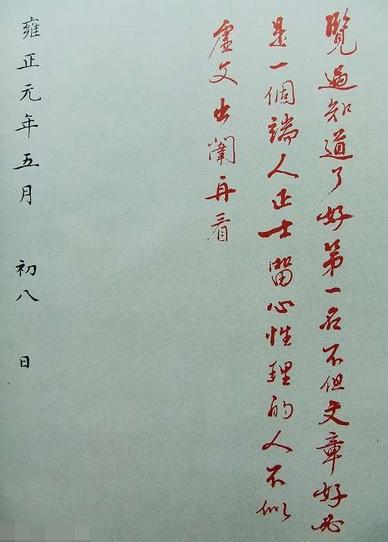 覽過知道了好第一名不但文章好必
是一個端人正士留心性理的人不似
虛文出闈再看
雍正元年五月 初八 日